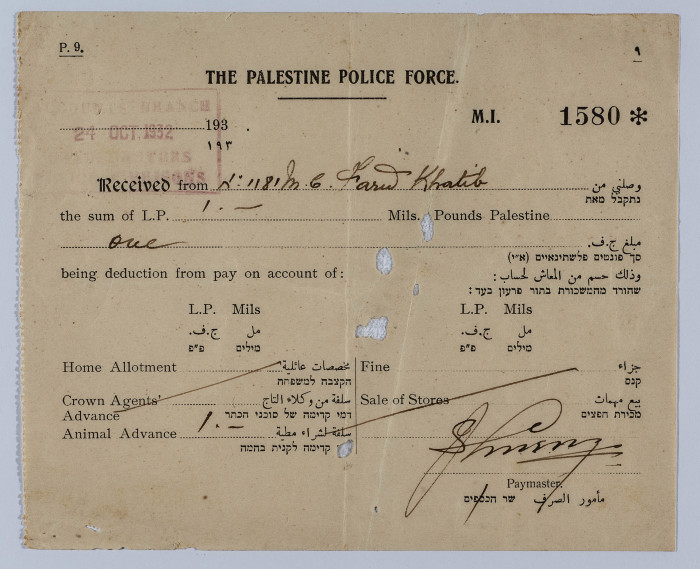 P. 9.
٩
THE PALESTINE POLICE FORCE.
M.I. 1580 *
BRANCH
24 OCT. 1932
193 .
١٩٣
Received from No 1181 M. C. Farid Khatib وصلني من
נתקבל מאת
the sum of L.P. 1. — Mils. Pounds Palestine
one مبلغ ج.ف.
סך פונטים פלשתינאיים (א״י)
being deduction from pay on account of: وذلك حسم من المعاش لحساب:
שחורד מהמשכורת בתור פרעון בעד:
L.P. Mils L.P. Mils
مل ج.ف. مل ج.ف.
מילים פ״פ מילים פ״פ
Home Allotment مخصصات عائلية Fine جزاء
הקצבה למשפחה קנס
Crown Agents' سلفة من وكلاء التاج Sale of Stores بيع مهمات
Advance דמי קדימה של סוכני הכתר מכירת חפצים
Animal Advance 1. — سلفة لشراء مطية
דמי קדימה לקנית בהמה
Paymaster.
مأمور الصرف שר הכספים